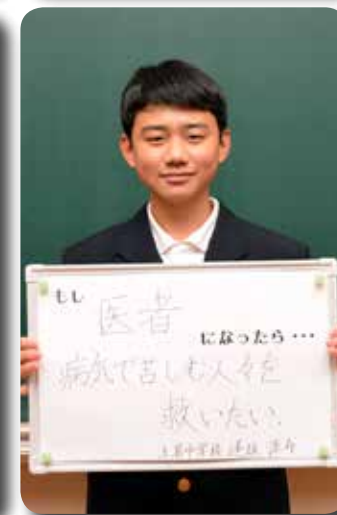 もし
医者
になったら…
病気で苦しむ人々を
救いたい。
中学校